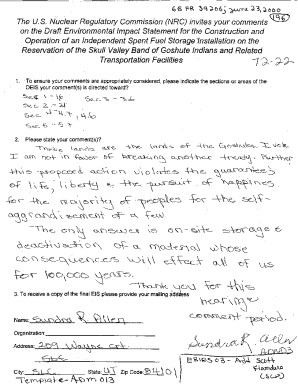 65 FR 39206, June 23, 2000
(196)
The U.S. Nuclear Regulatory Commission (NRC) invites your comments
on the Draft Environmental Impact Statement for the Construction and
Operation of an Independent Spent Fuel Storage Installation on the
Reservation of the Skull Valley Band of Goshute Indians and Related
Transportation Facilities
72-22
1. To ensure your comments are appropriately considered, please indicate the sections or areas of the
DEIS your comment(s) is directed toward?
Sec 1-16 Sec 3-36
Sec 2-21
Sec 4-7, 46
Sec 5-57
2. Please state your comment(s)?
These lands are the lands of the Goshutes.
I am not in favor of breaking another treaty. Further
this proposed action violates the guarantees
of life, liberty & the pursuit of happines
for the majority of peoples for the self-
aggrandisement of a few.
The only answer is on-site storage &
deactivation of a material whose
consequences will effect all of us
for 100,000 years.
Thank you for this
hearing
comment period.
3. To receive a copy of the final EIS please provide your mailing address
Name: Sundra R Allen
Organization
Address: 209 Wayne Crt.
SLC
City: SLC State: UT Zip Code: 84101
Sundra R. Allen
Template = ADM 013
ERIDS 03 = Add Scott
Flanders